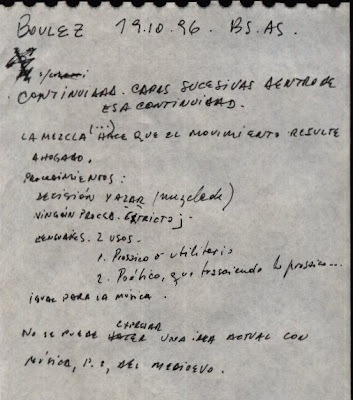 BOULEZ 19.10.96. BS.AS.
CONTINUIDAD. CAPAS SUCESIVAS DENTRO DE
ESA CONTINUIDAD.
LA MEZCLA (...) HACE QUE EL MOVIMIENTO RESULTE
AHOGADO.
PROCEDIMIENTOS:
DECISIÓN Y AZAR (mezclada)
NINGÚN PROCED. ESTRICTO;
LENGUAJES. 2 USOS.
1. Prosaico o utilitario
2. Poético, que trasciende lo prosaico...
IGUAL PARA LA MÚSICA.
EXPRESAR
NO SE PUEDE HACER UNA IDEA ACTUAL CON
MÚSICA, P. E, DEL MEDIOEVO.